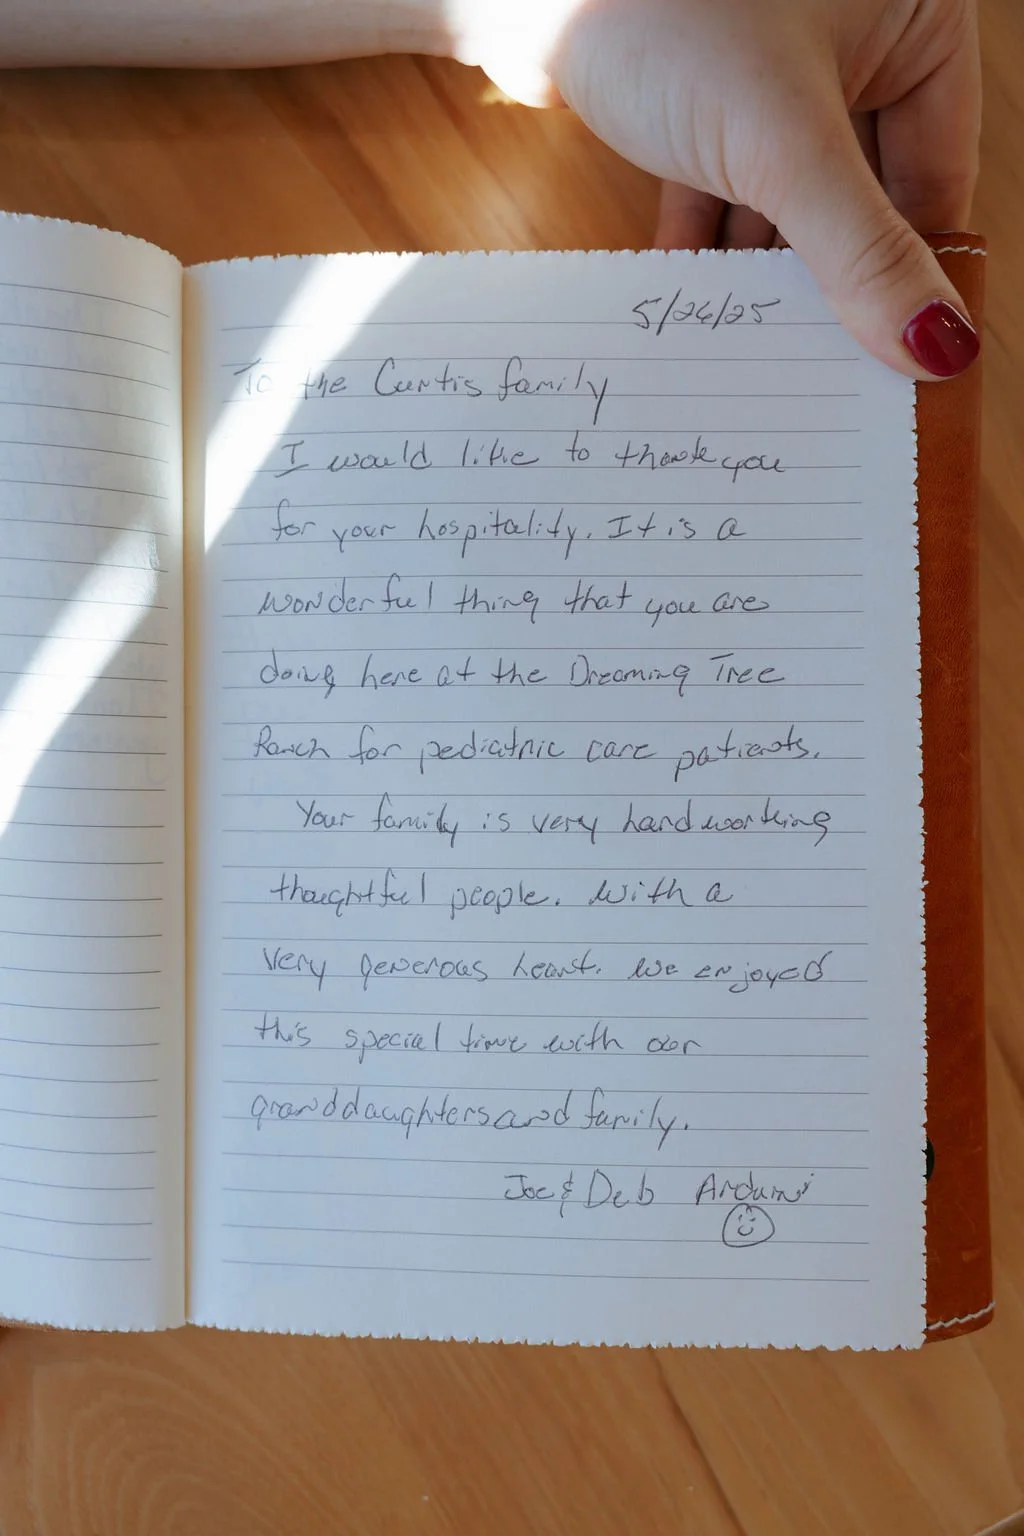 5/26/25
To the Curtis family
I would like to thank you
for your hospitality. It is a
wonderful thing that you are
doing here at the Dreaming Tree
Ranch for pediatric care patients.
Your family is very hardworking
thoughtful people. With a
very generous heart. We enjoyed
this special time with our
granddaughters and family.
Joe & Deb